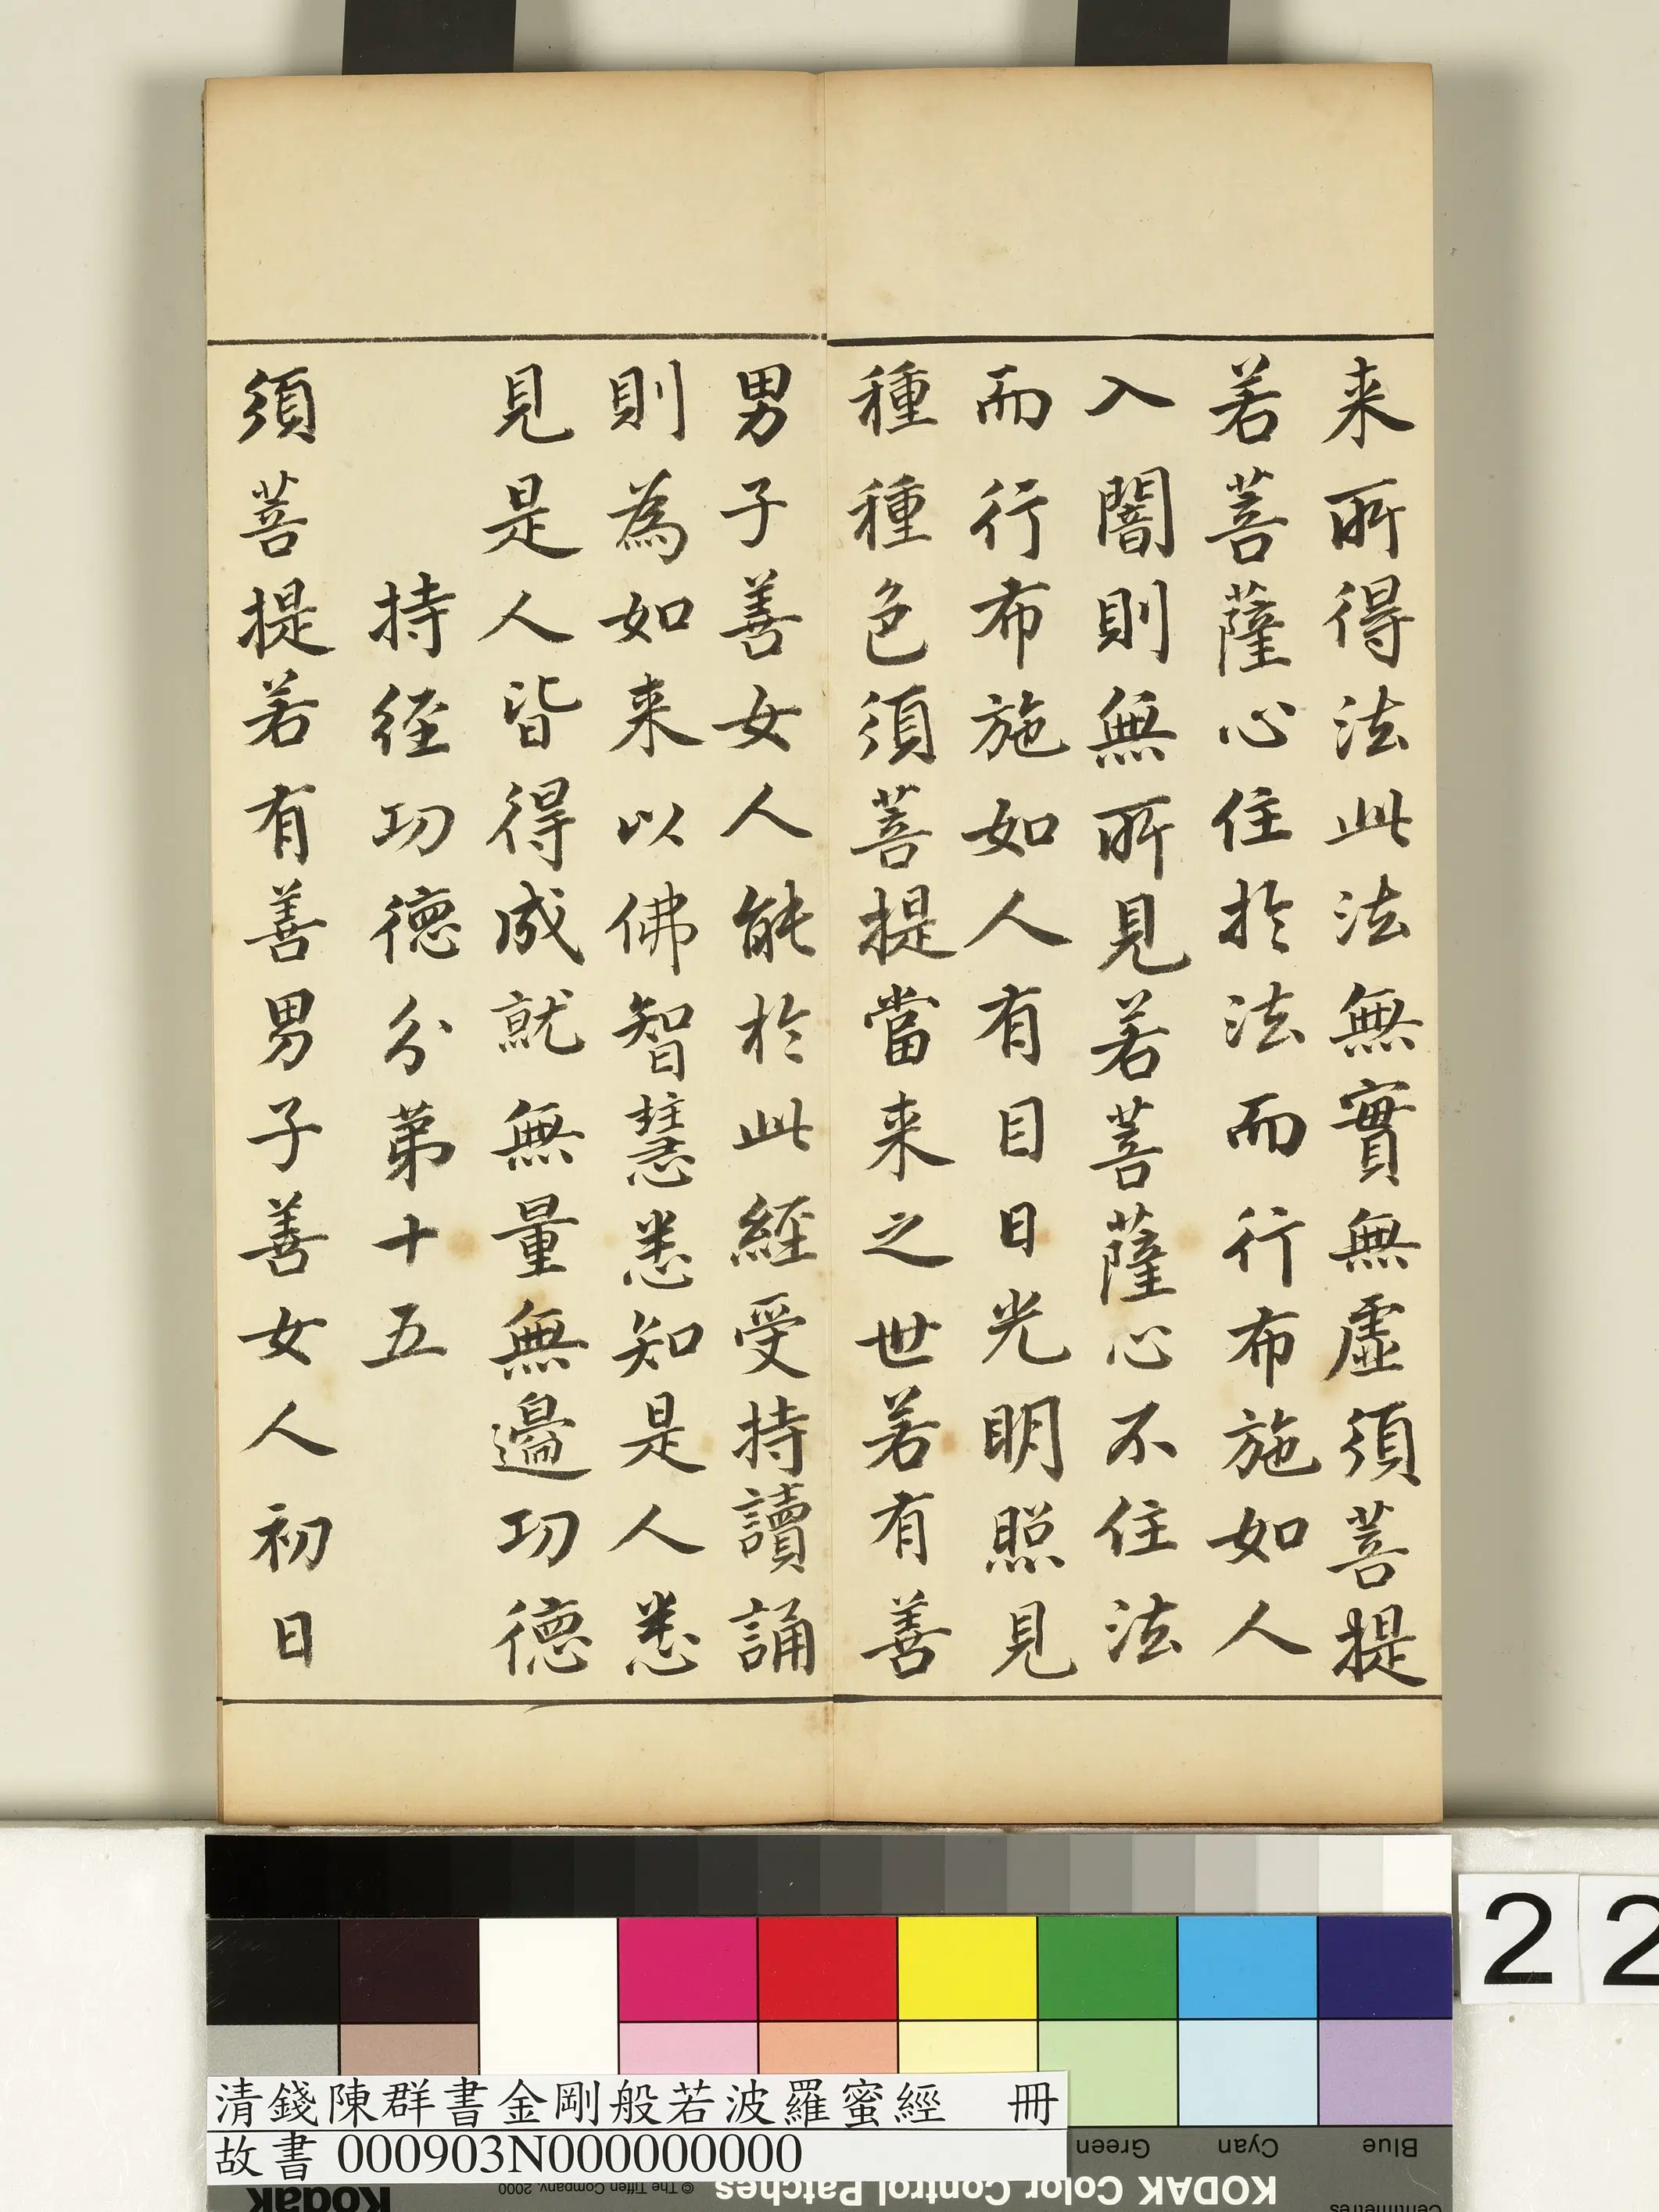 来所得法此法無實無虛須菩提
若菩薩心住於法而行布施如人
入闇則無所見若菩薩心不住法
而行布施如人有目日光明照見
種種色須菩提當来之世若有善
男子善女人能於此經受持讀誦
則為如来以佛智慧悉知是人悉
見是人皆得成就無量無邊功德
持經功德分第十五
須菩提若有善男子善女人初日
22
清錢陳群書金剛般若波羅蜜經 冊
故書000903N000000000
Green Cyan Blue
Kodak © The Tiffen Company, 2000 KODAK Color Control Patches Centimetres